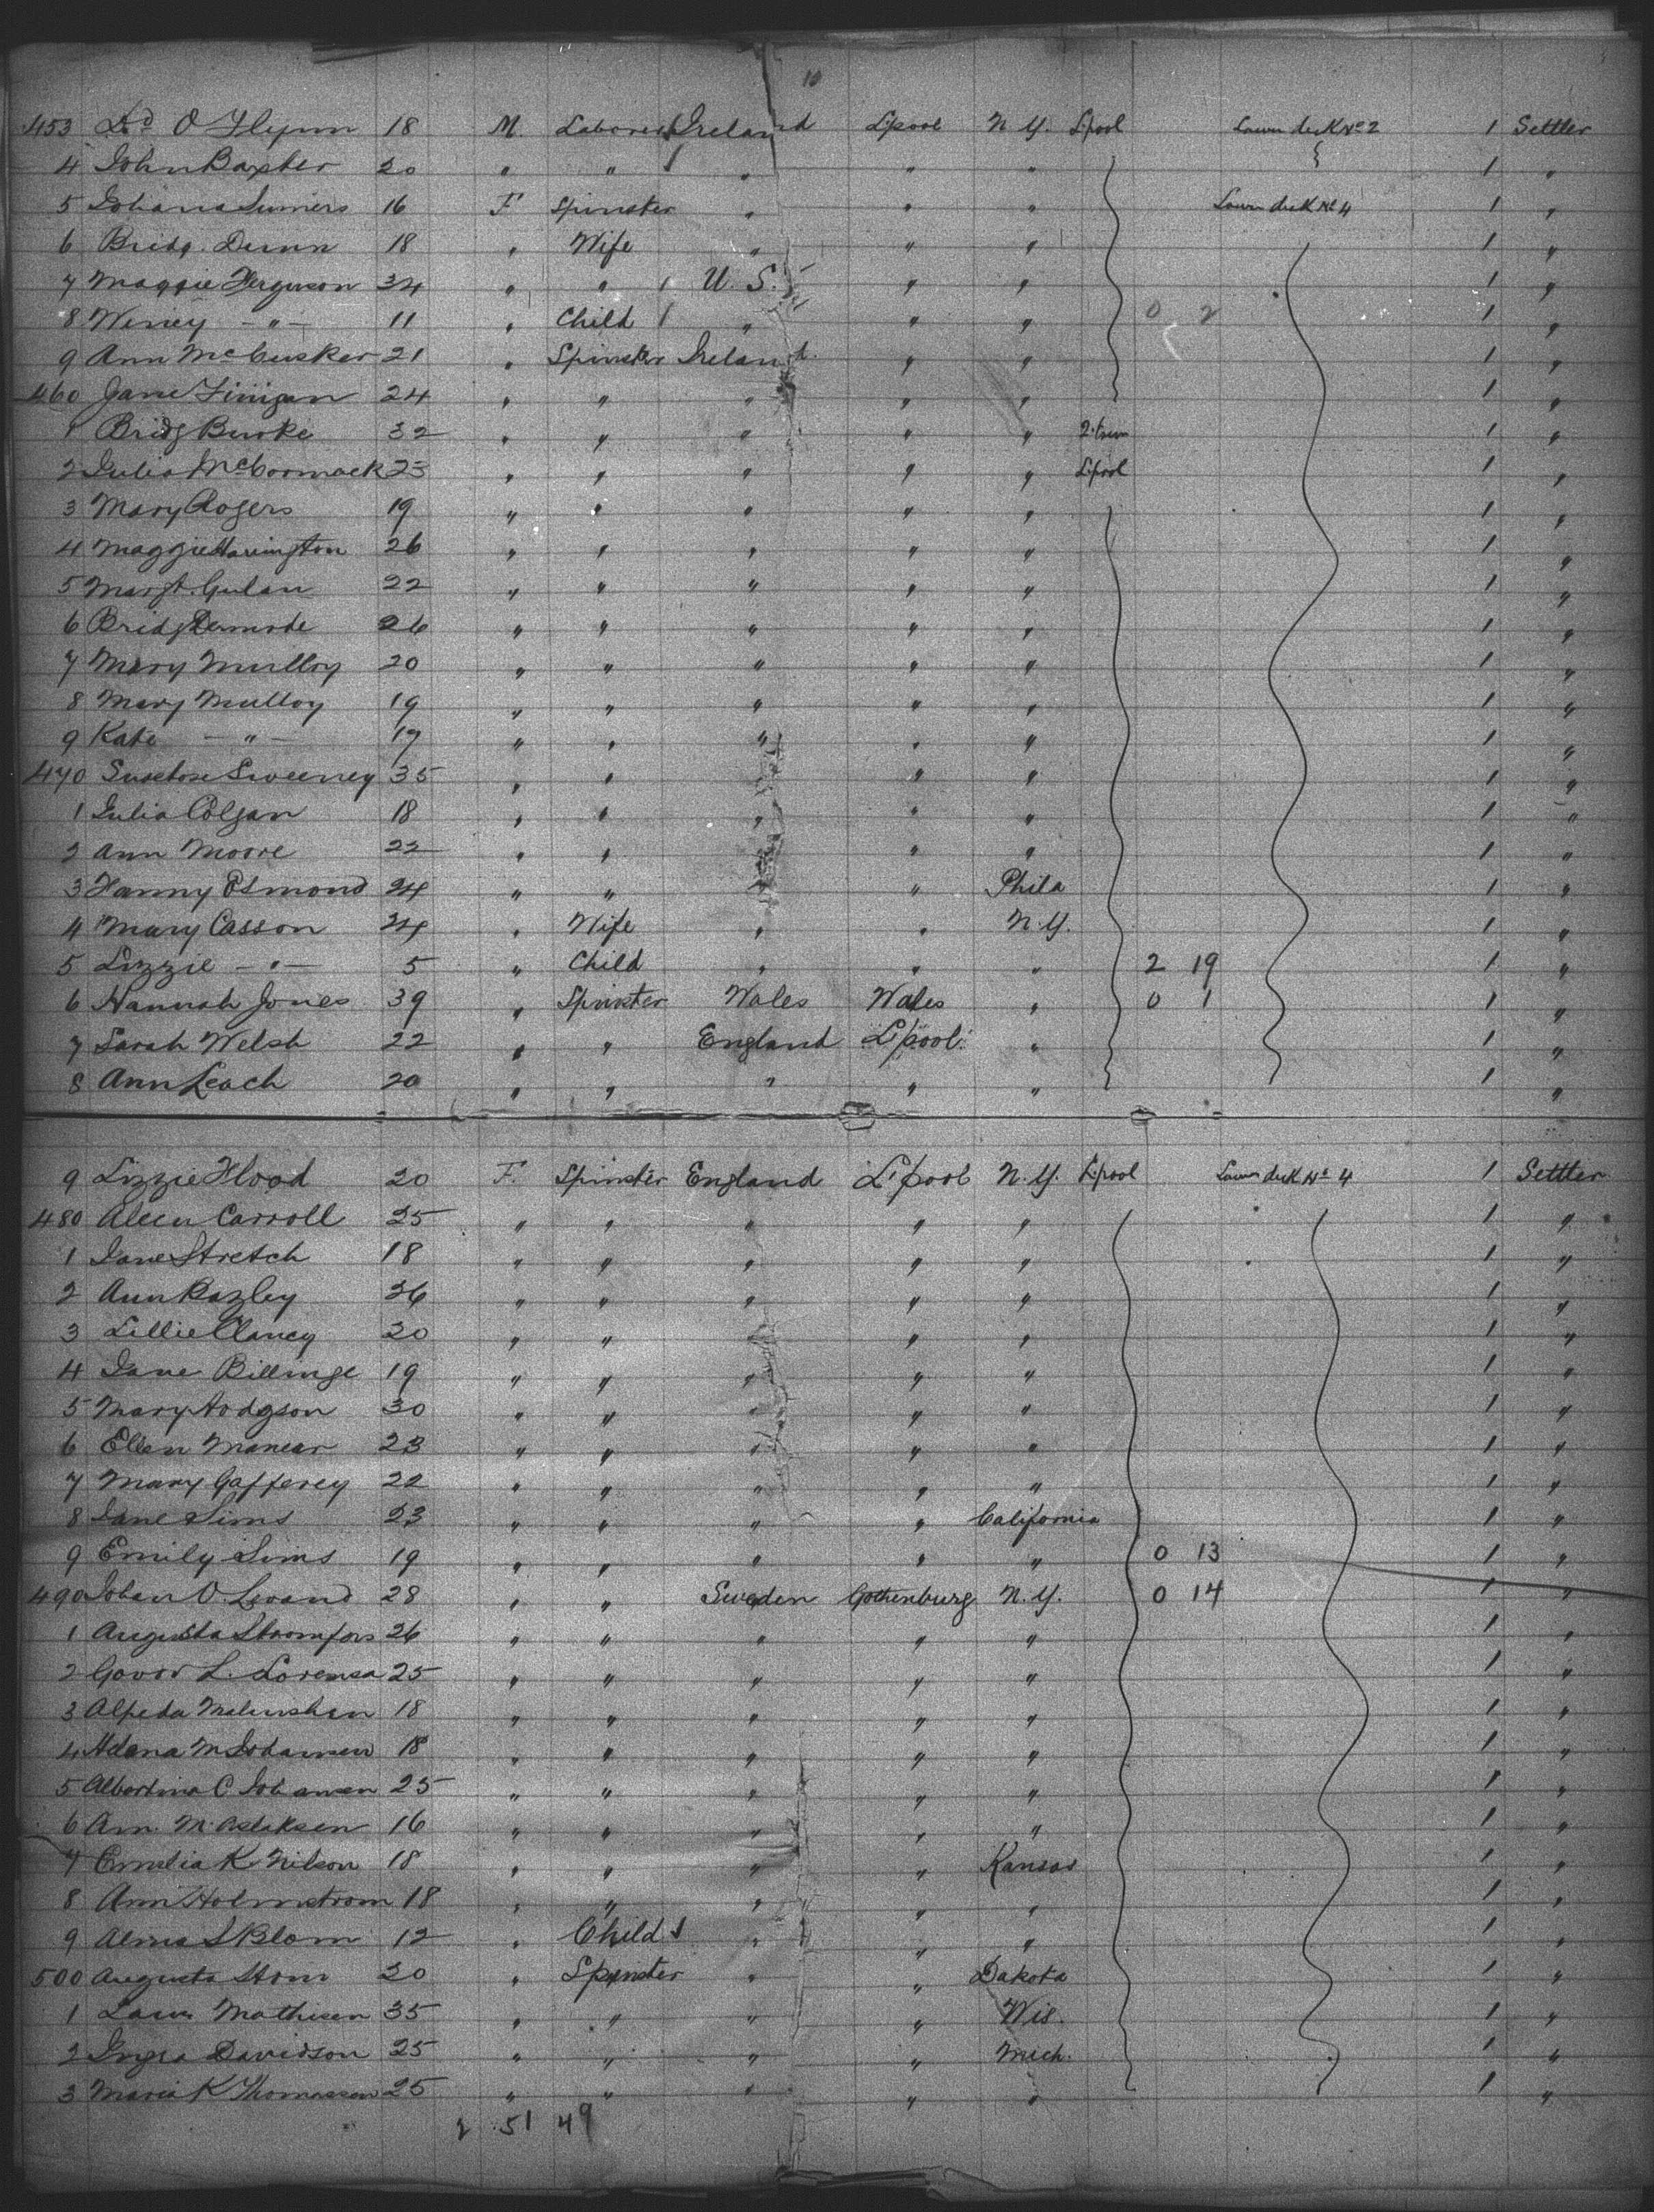 10
453 Ed O Flynn 18 M. Laborer Ireland L'pool N.Y. L'pool Lower deck No 2 1 Settler
4 John Baxter 20 " " " " " 1 "
5 Johana Sumers 16 F Spinster " " " Lower deck No 4 1 "
6 Bridg. Dunn 18 " Wife " " " 1 "
7 Maggie Ferguson 34 " " U.S. " " 1 "
8 Winey - " - 11 " Child " " " 0 2 1 "
9 Ann McCusker 21 " Spinster Ireland " " 1 "
460 Jane Finigan 24 " " " " " 1 "
1 Bridg Burke 32 " " " " " 1 "
2 Julia McCormack 23 " " " " " L'pool 1 "
3 Mary Rogers 19 " " " " " 1 "
4 Maggie Harrington 26 " " " " " 1 "
5 Margt. Gulan 22 " " " " " 1 "
6 Bridg Dermode 26 " " " " " 1 "
7 Mary Mulloy 20 " " " " " 1 "
8 Mary Mulloy 19 " " " " " 1 "
9 Kate - " - 17 " " " " " 1 "
470 Sweeney 35 " " " " " 1 "
1 Julia Colgan 18 " " " " " 1 "
2 Ann Moore 22 " " " " " 1 "
3 Fanny Esmond 24 " " " " Phila 1 "
4 Mary Casson 24 " Wife " " N.Y. 1 "
5 Lizzie - " - 5 " Child " " " 2 19 1 "
6 Hannah Jones 39 " Spinster Wales Wales " 0 1 1 "
7 Sarah Welsh 22 " " England L'pool " 1 "
8 Ann Leach 20 " " " " " 1 "
9 Lizzie Hood 20 F. Spinster England L'pool N.Y. L'pool Lower deck No 4 1 Settler
480 Alecn Carroll 25 " " " " " 1 "
1 Jane Stretch 18 " " " " " 1 "
2 Ann Bazley 36 " " " " " 1 "
3 Lillie Clancy 20 " " " " " 1 "
4 Jane Billinge 19 " " " " " 1 "
5 Mary Hodgson 30 " " " " " 1 "
6 Ellen Manear 23 " " " " " 1 "
7 Mary Gafferey 22 " " " " " 1 "
8 Jane Sims 23 " " " " California 1 "
9 Emily Sims 19 " " " " " 0 13 1 "
490 Johan O. Lwand 28 " " Sweden Gothenburg N.Y. 0 14 1 "
1 Augusta Stromfors 26 " " " " " 1 "
2 L. Lorensa 25 " " " " " 1 "
3 Alfeda 18 " " " " " 1 "
4 Adena M Johansen 18 " " " " " 1 "
5 Albertina C Johansen 25 " " " " " 1 "
6 Am. M. Aslaksen 16 " " " " " 1 "
7 Emelia K Nilson 18 " " " " Kansas 1 "
8 Ann Holmstrom 18 " " " " " 1 "
9 Alma S Blom 12 " Child " " " 1 "
500 Augusta Strom 20 " Spinster " " Dakota 1 "
1 Laur. Mathisen 35 " " " " Wis. 1 "
2 Ingra Davidson 25 " " " " Mich. 1 "
3 Maria K Thomassen 25 " " " " " 1 "
2 51 49